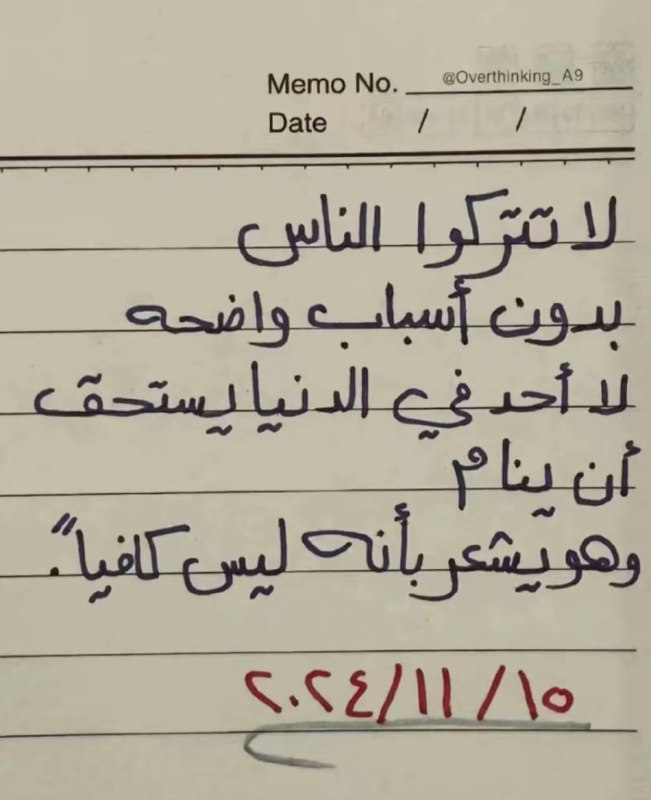 Memo No. @Overthinking_A9
Date / /
لا تتركوا الناس
بدون أسباب واضحه
لا أحد في الدنيا يستحق
أن ينام
وهو يشعر بأنه ليس كافياً.
٢٠٢٤/١١/١٥